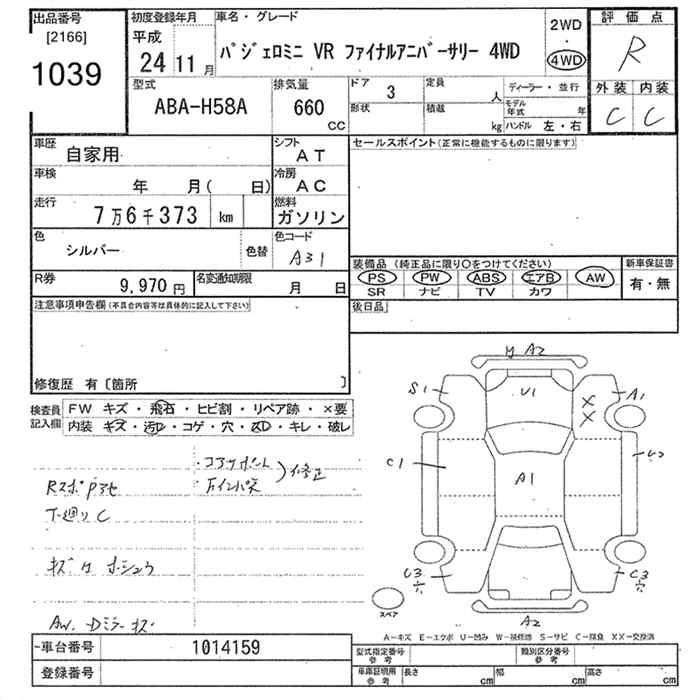 出品番号
[2166]
1039
初度登録年月
平成
24 11月
車名・グレード
パジェロミニ VR ファイナルアニバーサリー 4WD
2WD
・
4WD
評価点
R
外装 内装
C C
型式
ABA-H58A
排気量
660
CC
ドア
3
形状
定員
人
積載
kg
ディーラー・並行
モデル年式 年
ハンドル 左・右
車歴
自家用
シフト
AT
車検
年 月( 日)
冷房
AC
走行
7万6千373 km
燃料
ガソリン
色
シルバー
色替
色コード
A31
R券
9,970円
名変通知期限
月 日
セールスポイント(正常に機能するものに限ります)
装備品(純正品に限り○をつけてください)
PS PW ABS エアB AW
SR ナビ TV カワ
新車保証書
有・無
後日品
注意事項申告欄(不具合内容等は具体的に記入して下さい)
修復歴 有〔箇所 〕
検査員記入欄
FW キズ・飛石・ヒビ割・リペア跡・×要
内装・キズ・汚レ・コゲ・穴・スレ・キレ・破レ
コアサポート
)修正
下廻りC
キズ
AW. Dミラーキズ
A2
S1
U1
A1
X
X
C1
A1
U2
U3
穴
C3
穴
A2
スペア
A-キズ E-エクボ U-凹み W-補修跡 S-サビ C-腐食 XX-交換済
車台番号
1014159
登録番号
型式指定番号
参考
類別区分番号
参考
車庫証明用
参考
長さ cm
幅 cm
高さ cm